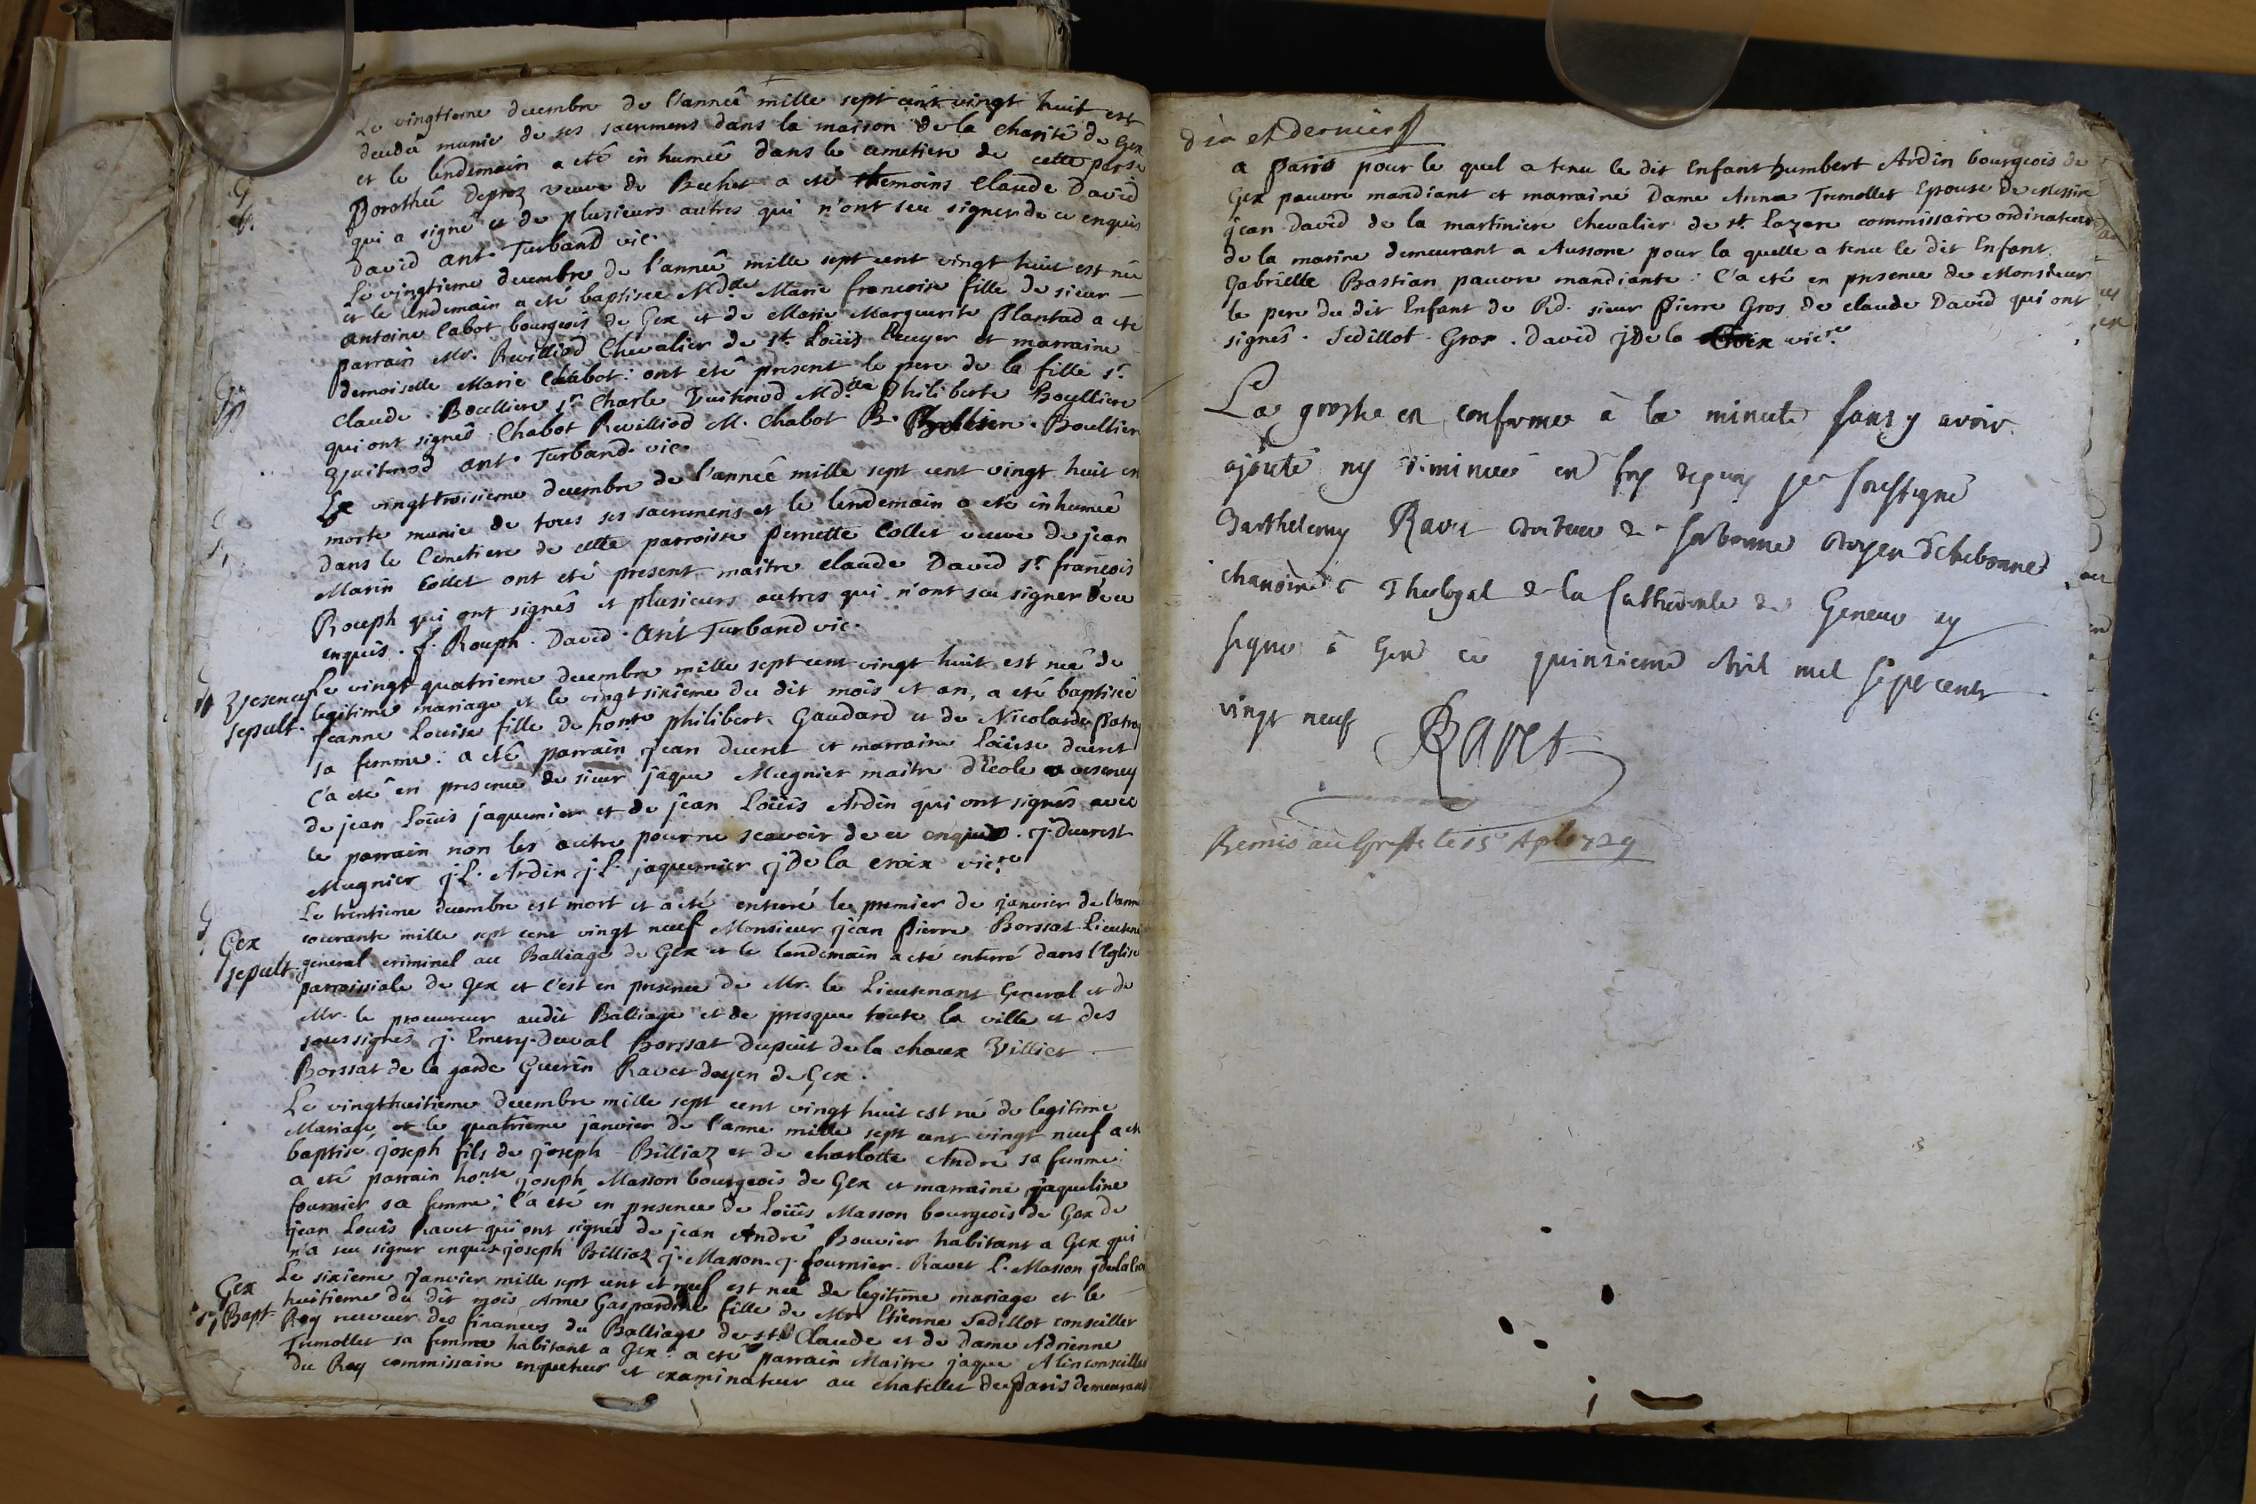 Le vingtieme decembre de l'anneê mille sept cent vingt huit est
decedeê munie de ses sacremens dans la maison de la charité de Gex
et le lendemain a eté inhumeê dans le cemetiere de cette parse
Dorotheê Deproz veuve de Bechet a eté temoins Claude David
qui a signé et de plusieurs autres qui n'ont sçu signer de ce enquis
David ant. Turband vic.
Le vingtieme decembre de l'anneê mille sept cent vingt huit est neê
et le lendemain a eté baptisee Marie francoise fille de sieur
antoine Cabot bourgeois de Gex et de Marie Marguerite Plantad a eté
parrain Mr. Revilliod Chevalier de st. Loüis Ecuyer et marraine
demoiselle Marie Chabot: ont eté present le pere de la fille sr.
Claude Boulliere sr. Charle Vuitnod Philiberte Boulliere
qui ont signeé Chabot Revilliod M. Chabot B. Boullier
Vuitnod ant. Turband vic.
Le vingttroisieme decembre de l'anneê mille sept cent vingt huit est
morte munie de tous ses sacremens et le lendemain a eté inhumeê
dans le Cemetiere de cette parroisse pernette Collet veuve de jean
Marin Collet ont eté present maitre claude David sr. françois
Rouph qui ont signés et plusieurs autres qui n'ont sçu signer de ce
enquis. f. Rouph. David. ant Turband vic.
Vesenex sepult.
Le vingt quatrieme decembre mille sept cent vingt huit est neé de
legitime mariage et le vingt sixieme du dit mois et an, a eté baptiseê
Jeanne Louise fille de honte philibert Gaudard et de Nicolarde Patroy
sa femme: a eté parrain jean ducret et marraine Loüise ducret
C'a eté en presence de sieur jaque Mugnier maitre d'Ecole a vesenex
de jean Loüis jaquemier et de jean Loüis Ardin qui ont signés avec
le parrain non les autre pour ne scavoir de ce enquis. j. ducrest
Mugnier j.L. Ardin j.L. jaquemier j De la croix vicre
Gex sepult.
Le trentieme decembre est mort et a eté enterré le premier de janvier de l'anneé
courante mille sept cent vingt neuf Monsieur jean Pierre Borssat Lieutenant
general criminel au Balliage de Gex et le lendemain a eté enterré dans l'Eglise
parroissiale de Gex et c'est en presence de Mr. le Lieutenant General et de
Mr. le procureur audit Balliage et de presque toute la ville et des
soussignés j. Emery Duval Borssat Dupuit de la chaux Villiet
Borssat de la garde Guerin Ravet doyen de Gex.
Le vingthuitieme decembre mille sept cent vingt huit est né de legitime
Mariage et le quatrieme janvier de l'anne mille sept cent vingt neuf a eté
baptisé joseph fils de joseph Billiaz et de charlotte André sa femme:
a eté parrain honte joseph Masson bourgeois de Gex et marraine jaqueline
fournier sa femme; C'a eté en presence de Loüis Masson bourgeois de Gex de
jean Louis Ravet qui ont signés de jean André Bouvier habitant a Gex qui
n'a sçu signer enquis joseph Billiaz j. Masson. j. fournier. Ravet L. Masson
Gex Bapt.
Le sixieme janvier mille sept cent et neuf est neé de legitime mariage et le
huitieme du dit mois Anne Gaspardine fille de Mr Etienne Sedillot conseiller
Roy receveur des finances du Balliage de st. Claude et de Dame Adrienne
Tremollet sa femme habitant a Gex: a eté parrain Maitre jaque Alin conseiller
du Roy commissaire enqueteur et examinateur au chatellet de Paris demeurant
dix et dernier
a Paris pour le quel a tenu le dit Enfant humbert Ardin bourgeois de
Gex pauvre mandiant et marraine Dame Anna Tremollet Epouse de Messire
jean david de la martiniere chevalier de st. Lazare commissaire ordinateur
de la marine demeurant a Aussone pour la quelle a tenu le dit Enfant
Gabrielle Bastian pauvre mandiante: C'a eté en presence de Monsieur
le pere du dit Enfant de Rd. sieur Pierre Gros de claude David qui ont
signés. Sedillot. Gros. David j De la Croix vicre
La grosse est conforme à la minute sans y avoir
ajouté ny diminué en foy dequoy je soussigné
Barthelemy Ravet docteur de sorbonne doyen
chanoine Theologal de la Cathedrale de Geneve ay
signé à Gex ce quinzieme Avril mil sept cents
vingt neuf Ravet
Remis au Greffe le 15e Apl 1729